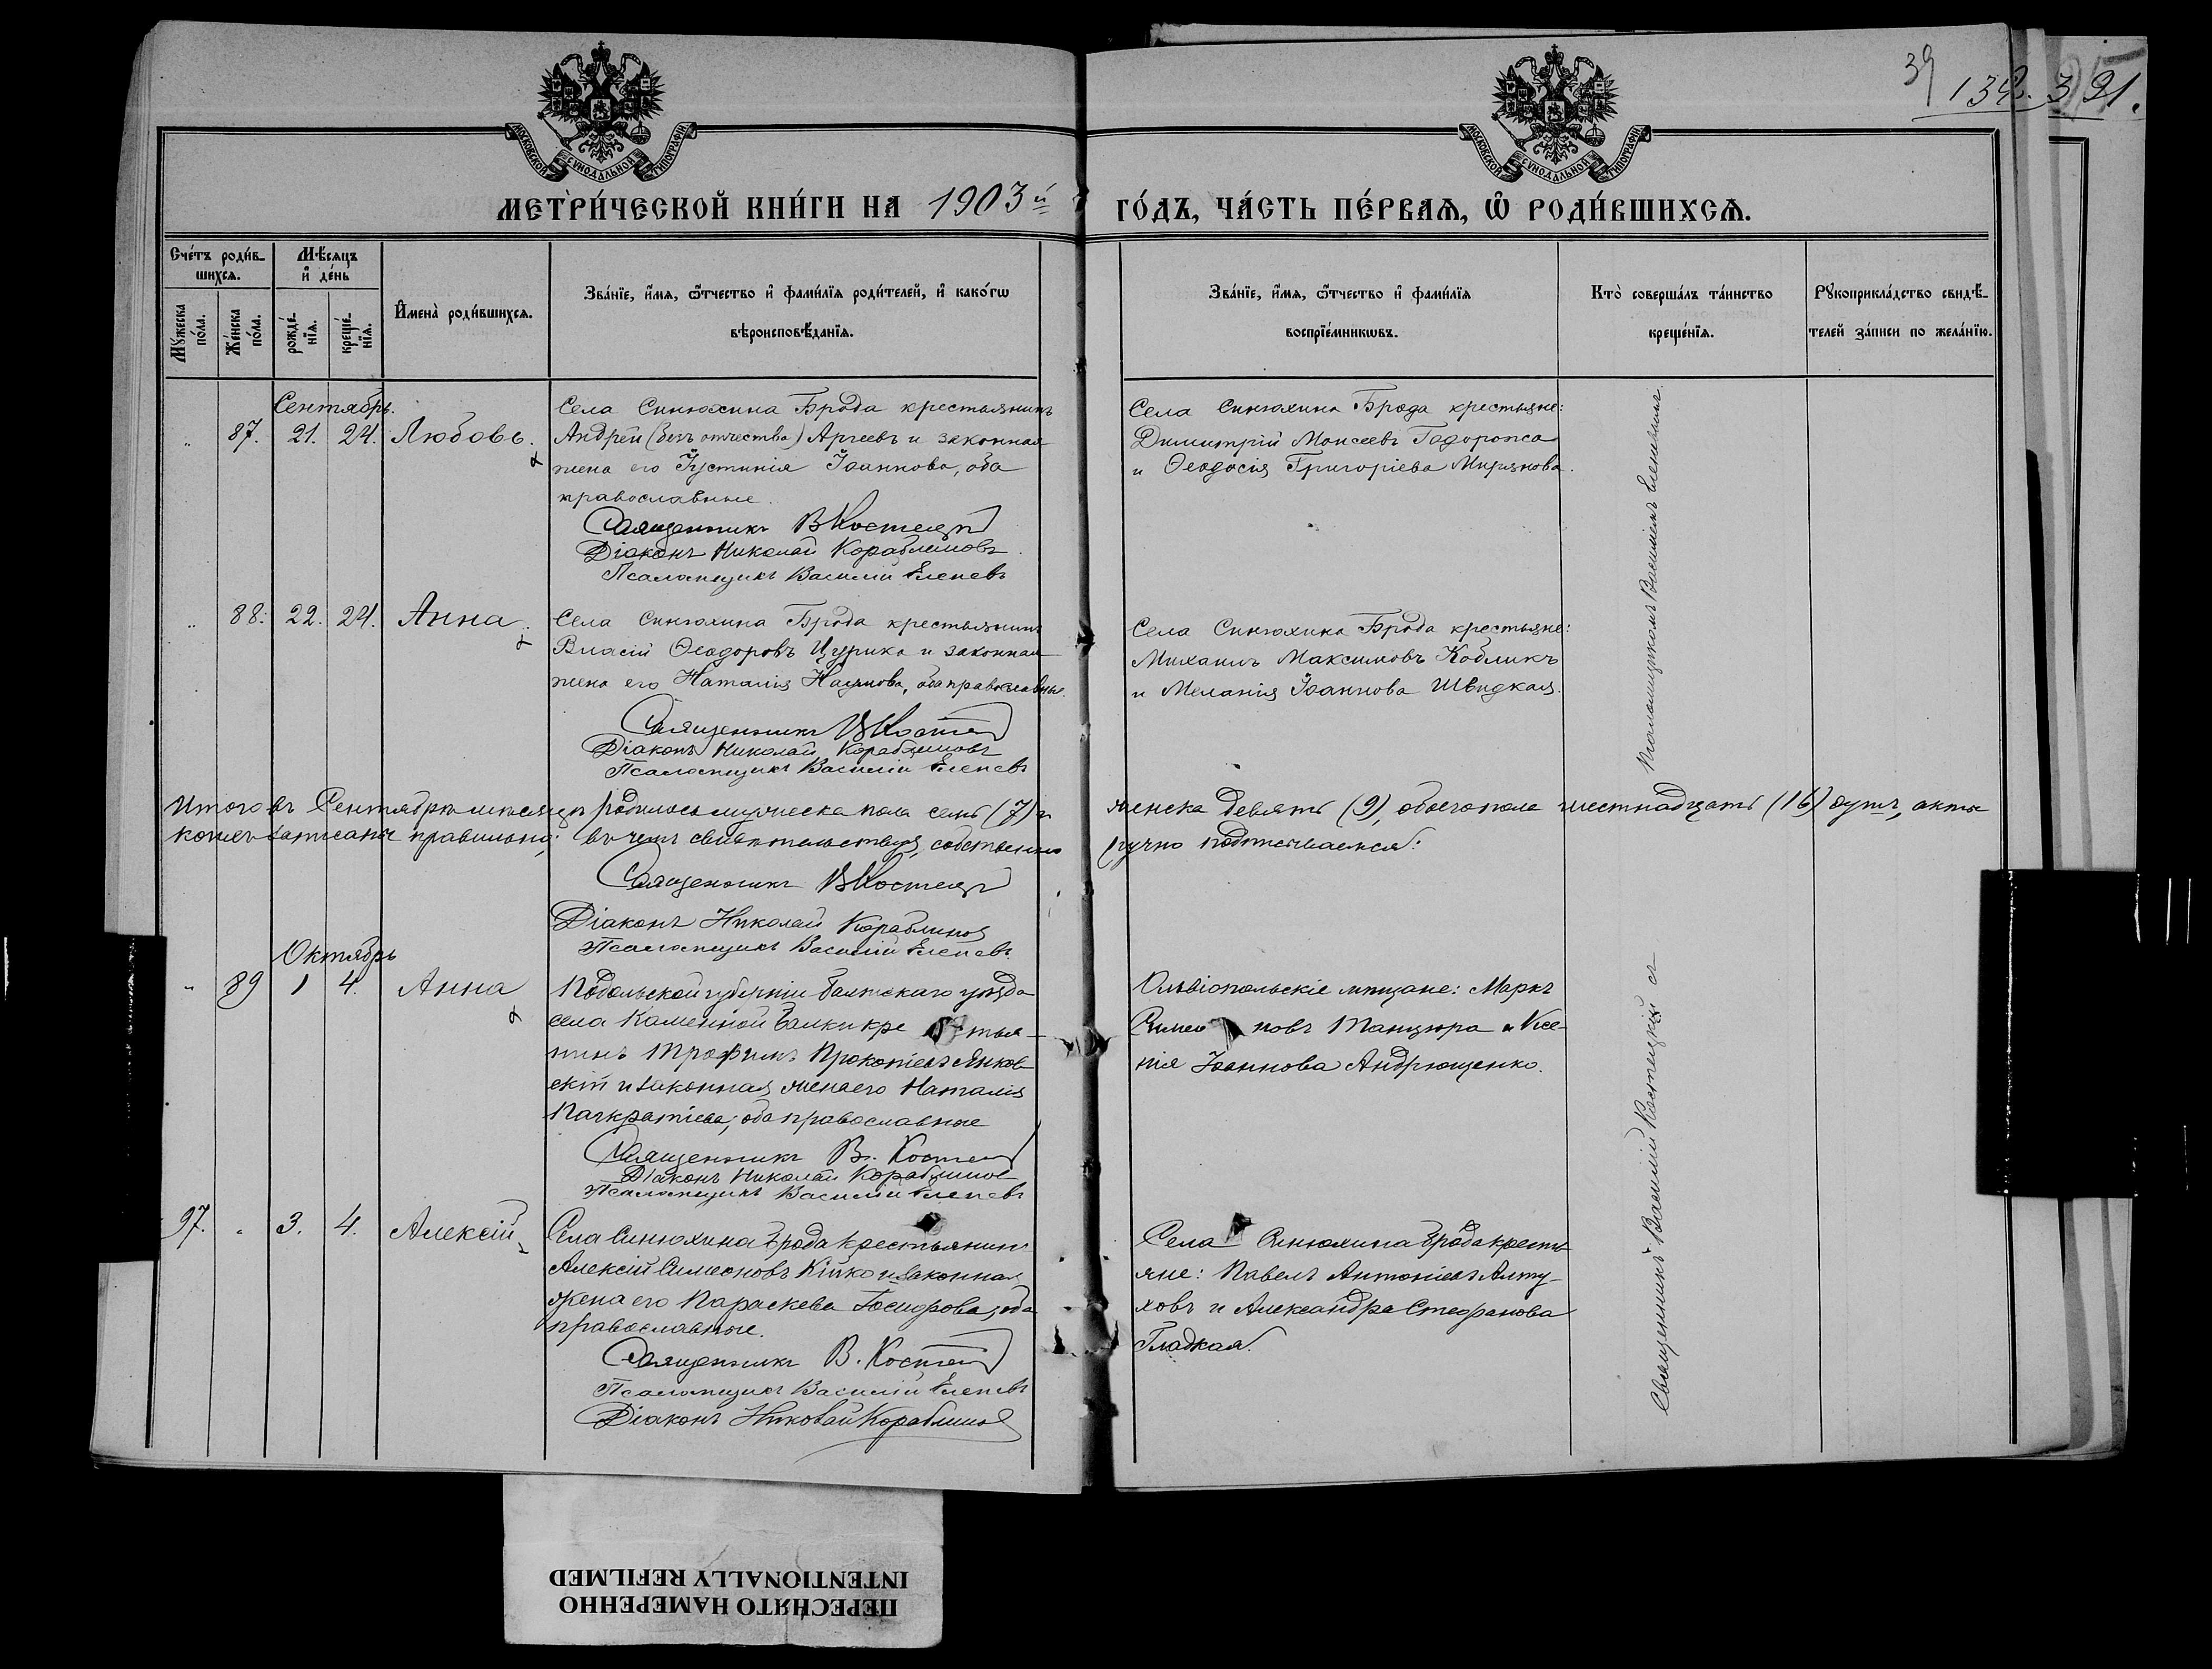 39
132. 321.
МОСКОВСКОЙ СѴНОДАЛЬНОЙ ТИПОГРАФІИ
МОСКОВСКОЙ СѴНОДАЛЬНОЙ ТИПОГРАФІИ
МЕТРИ́ЧЕСКОЙ КНИ́ГИ НА 1903й
ГО́ДЪ, ЧА́СТЬ ПЕ́РВАѦ, Ѡ҆ РОДИ́ВШИХСѦ.
Сче́тъ роди́в-
шихсѧ.
Мѣ́сѧцъ
и҆ де́нь
Мꙋ́жеска
по́ла.
Же́нска
по́ла.
рожде́-
нїѧ.
креще́-
нїѧ.
И҆мена̀ роди́вшихсѧ.
Зва́нїе, и҆́мѧ, ѻ҆́тчество и҆ фами́лїѧ роди́телей, и҆ како́гѡ
вѣроисповѣ́данїѧ.
Зва́нїе, и҆́мѧ, ѻ҆́тчество и҆ фами́лїѧ
воспрїе́мникѡвъ.
Кто̀ соверша́лъ та́инство
креще́нїѧ.
Рꙋкоприкла́дство свидѣ́-
телей за́писи по жела́нїю.
Сентябрь.
" 87. 21. 24. Любовь.
Села Синюхина Брода крестьянинъ
Андрей (безъ отчества) Аргеевъ и законная
жена его Іустинія Іоаннова, оба
православные.
Священникъ В Костецкій
Діаконъ Николай Кораблиновъ
Псаломщикъ Василій Еленевъ
Села Синюхина Брода крестьяне:
Димитрій Моисеевъ Тодорожа
и Ѳеодосія Григоріева Мирянова.
Псаломщикомъ Василіемъ Еленевымъ.
" 88. 22. 24. Анна.
Села Синюхина Брода крестьянинъ
Власій Ѳеодоровъ Цурика и законная
жена его Наталія Наумова, оба православные.
Священникъ В Костецкій
Діаконъ Николай Кораблиновъ
Псаломщикъ Василій Еленевъ
Села Синюхина Брода крестьяне:
Михаилъ Максимовъ Кобликъ
и Меланія Іоаннова Швидкая.
Итого въ Сентябрѣ мѣсяцѣ родилось мужеска пола семь (7) и женска девять (9), обоего пола шестнадцать (16) душъ, акты
коихъ записаны правильно, въ чемъ свидѣтельствуя, собственноручно подписываемся:
Священникъ В Костецкій
Діаконъ Николай Кораблиновъ
Псаломщикъ Василій Еленевъ.
Октябрь
" 89 1 4. Анна
Подольской губерніи Балтскаго уѣзда
села Каменной Балки крестья-
нинъ Трофимъ Прокопіевъ Янков-
скій и законная жена его Наталія
Панкратіева, оба православные
Священникъ В. Костецкій
Діаконъ Николай Кораблиновъ
Псаломщикъ Василій Еленевъ
Ольвіопольскіе мѣщане: Маркъ
Симеоновъ Танцюра и Ксе-
нія Іоаннова Андрющенко.
Священникъ Василій Костецкій съ
97. " 3. 4. Алексій
Села Синюхина Брода крестьянинъ
Алексій Симеоновъ Кійко и законная
жена его Параскева Іосифова, оба
православные.
Священникъ В. Костецкій
Псаломщикъ Василій Еленевъ
Діаконъ Николай Кораблиновъ
Села Синюхина Брода кресть-
яне: Павелъ Антоніевъ Алту-
ховъ и Александра Стефанова
Гладкая.
ПЕРЕСНЯТО НАМЕРЕННО
INTENTIONALLY REFILMED